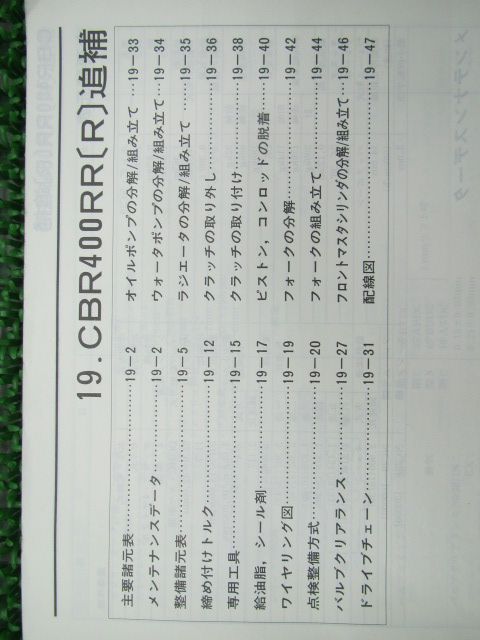 19. CBR400RR〔R〕追補
主要諸元表…………………………19－2
メンテナンスデータ………………19－2
整備諸元表…………………………19－5
締め付けトルク……………………19－12
専用工具……………………………19－15
給油脂，シール剤…………………19－17
ワイヤリング図……………………19－19
点検整備方式………………………19－20
バルブクリアランス………………19－27
ドライブチェーン…………………19－31
オイルポンプの分解/組み立て …19－33
ウォータポンプの分解/組み立て…19－34
ラジエータの分解/組み立て ……19－35
クラッチの取り外し………………19－36
クラッチの取り付け………………19－38
ピストン，コンロッドの脱着……19－40
フォークの分解……………………19－42
フォークの組み立て………………19－44
フロントマスタシリンダの分解/組み立て…19－46
配線図………………………………19－47
メンテナンスデータ